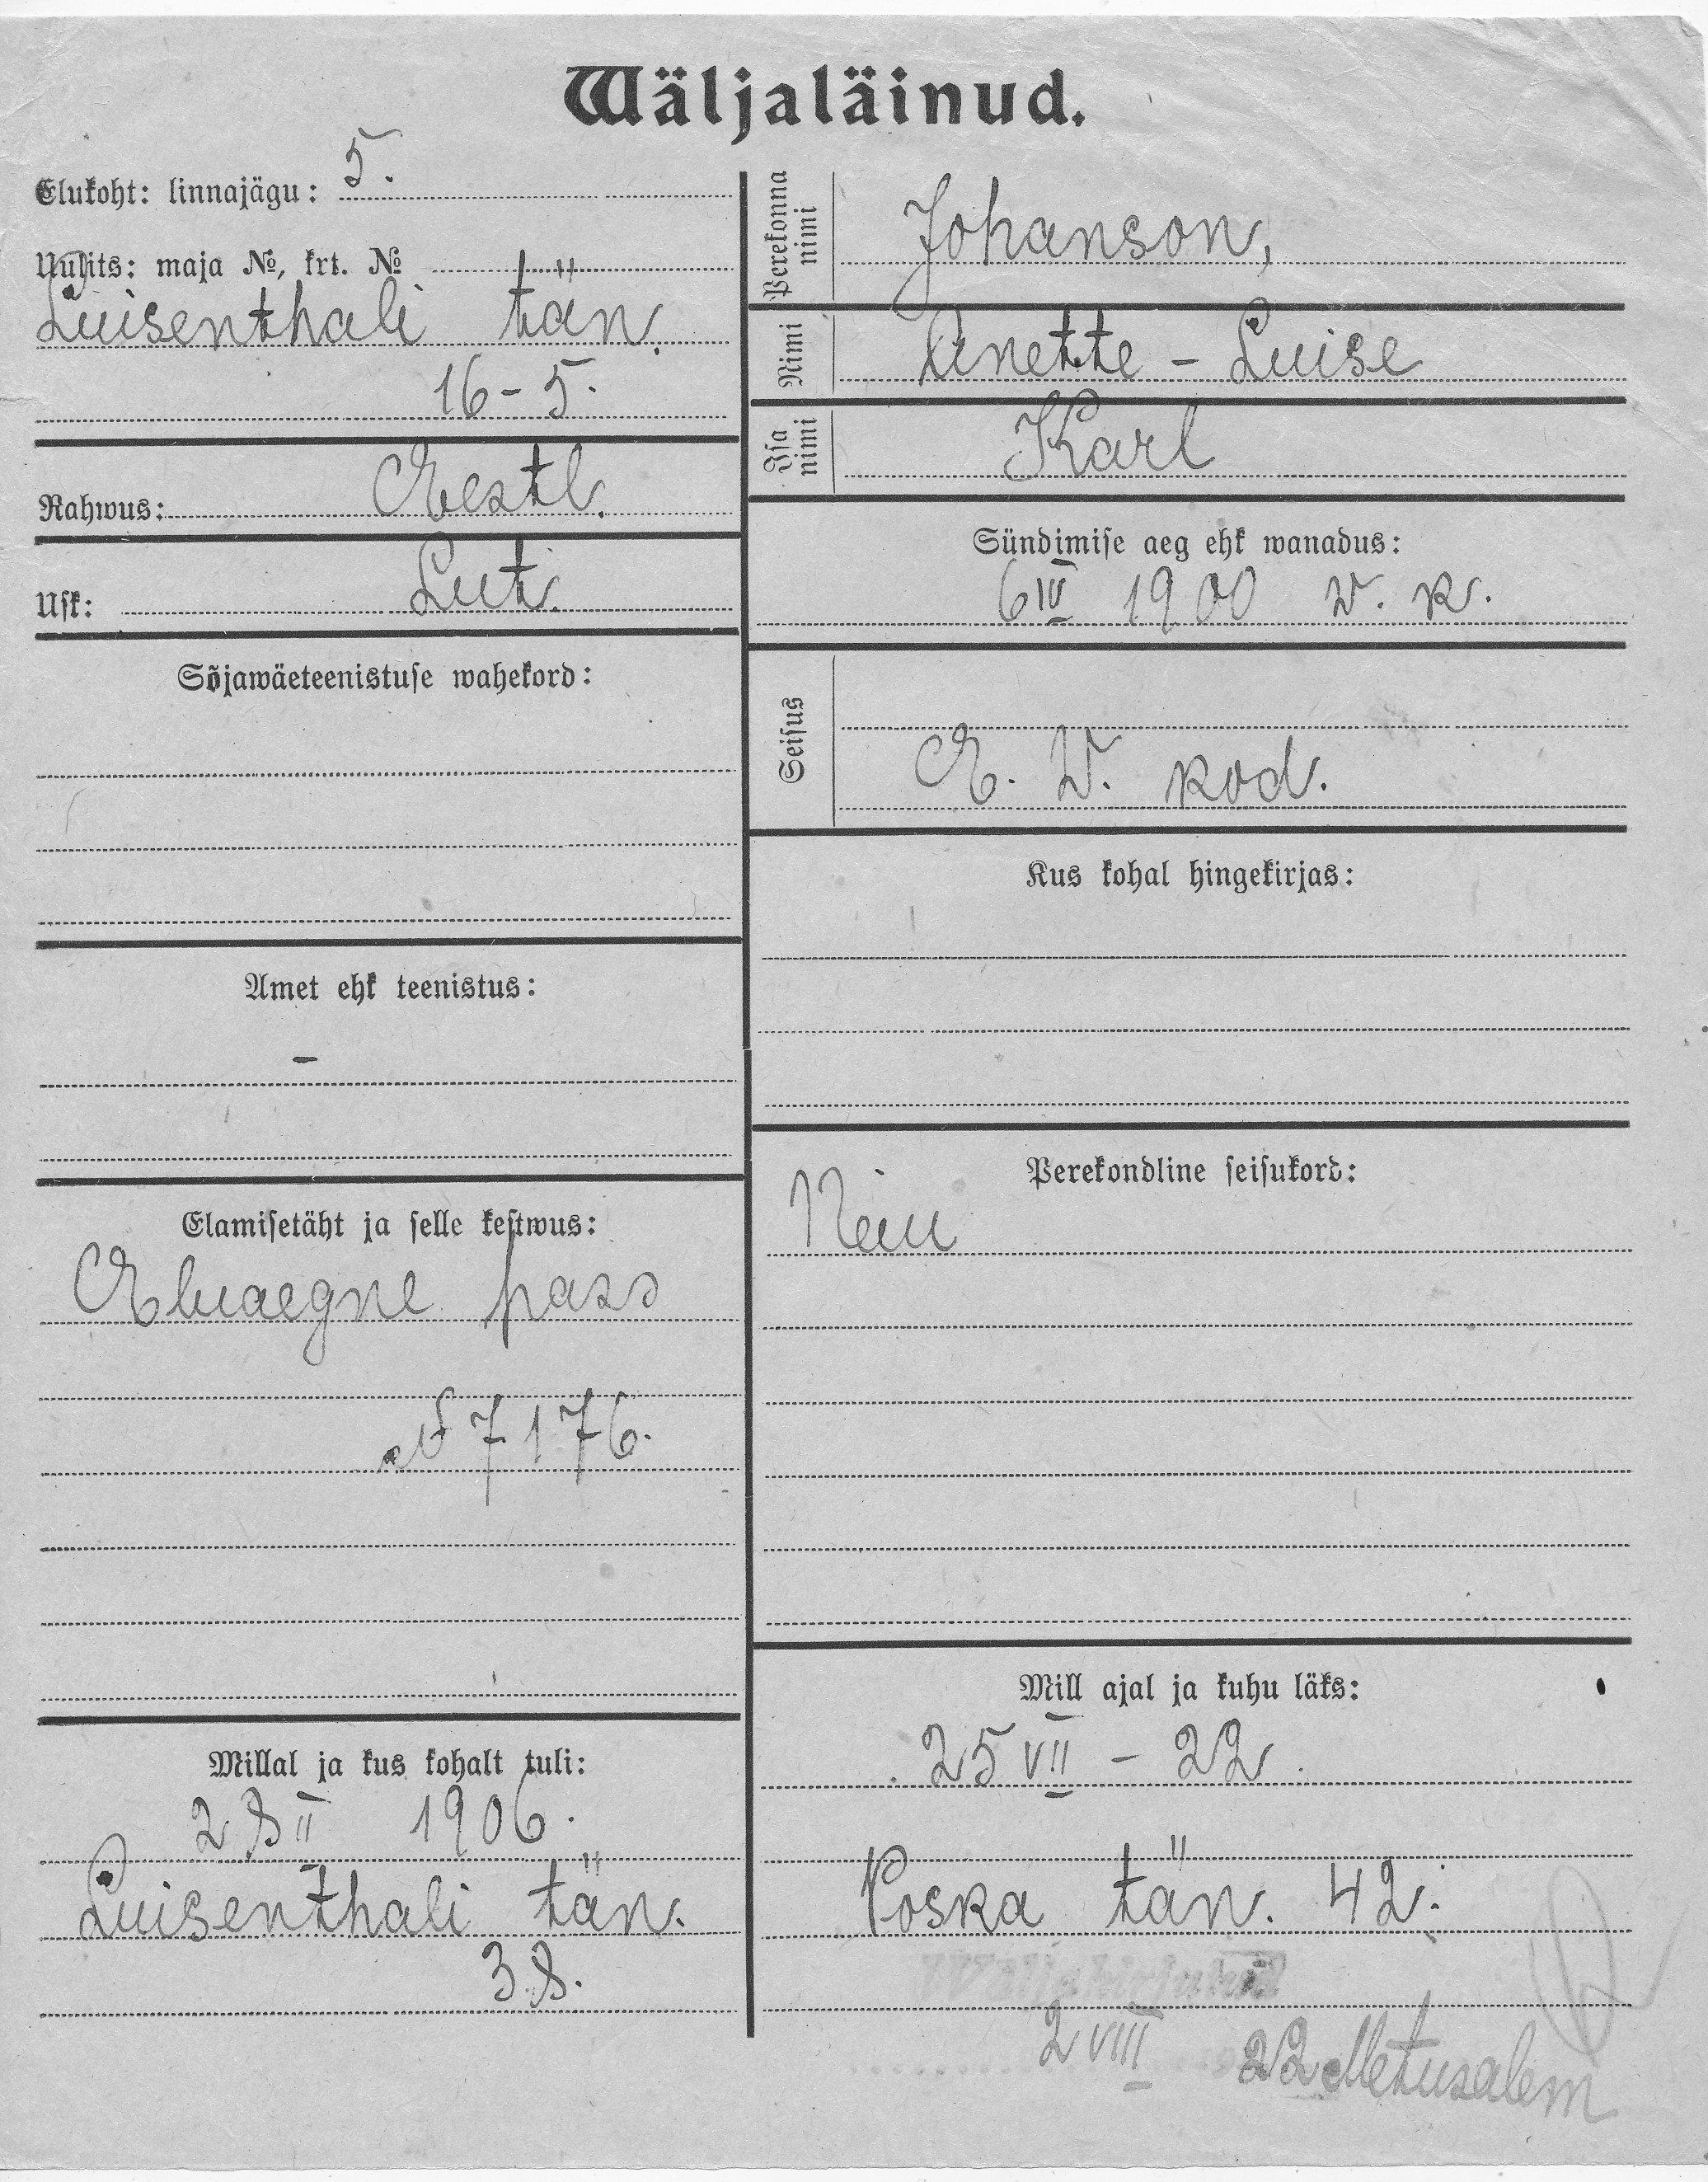 Wäljaläinud.
Elukoht: linnajägu: 5.
Uulits: maja №, krt. №
Luisenthali tän.
16-5.
Rahwus: Eestl.
Usk: Lut.
Sõjawäeteenistuse wahekord:
Amet ehk teenistus:
-
Elamisetäht ja selle kestwus:
Eluaegne pass
№ 7176.
Millal ja kus kohalt tuli:
28 II 1906.
Luisenthali tän.
38.
Perekonna nimi
Johanson,
Nimi
Anette - Luise
Isa nimi
Karl
Sündimise aeg ehk wanadus:
6 IV 1900 w. k.
Seisus
E. W. kod.
Kus kohal hingekirjas:
Perekondline seisukord:
Neiu
Mill ajal ja kuhu läks:
25 VII - 22.
Poska tän. 42.
Väljakirjutatud
2 VIII 22 Metusalem